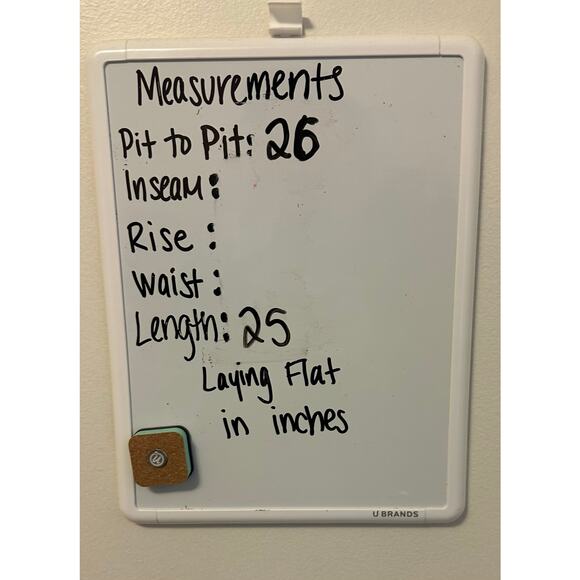 Measurements
Pit to Pit: 26
Inseam:
Rise:
Waist:
Length: 25
Laying Flat
in inches
U BRANDS